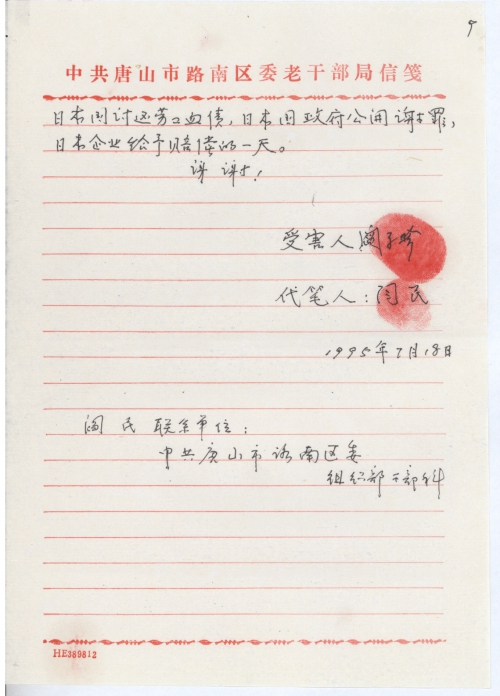 中共唐山市路南区委老干部局信笺
日本国讨还劳工血债,日本国政府公开谢罪,
日本企业给予赔偿的一天。
谢谢!
受害人阎子珍
代笔人:闫民
1995年7月18日
阎民联系单位:
中共唐山市路南区委
组织部干部科
HE389812